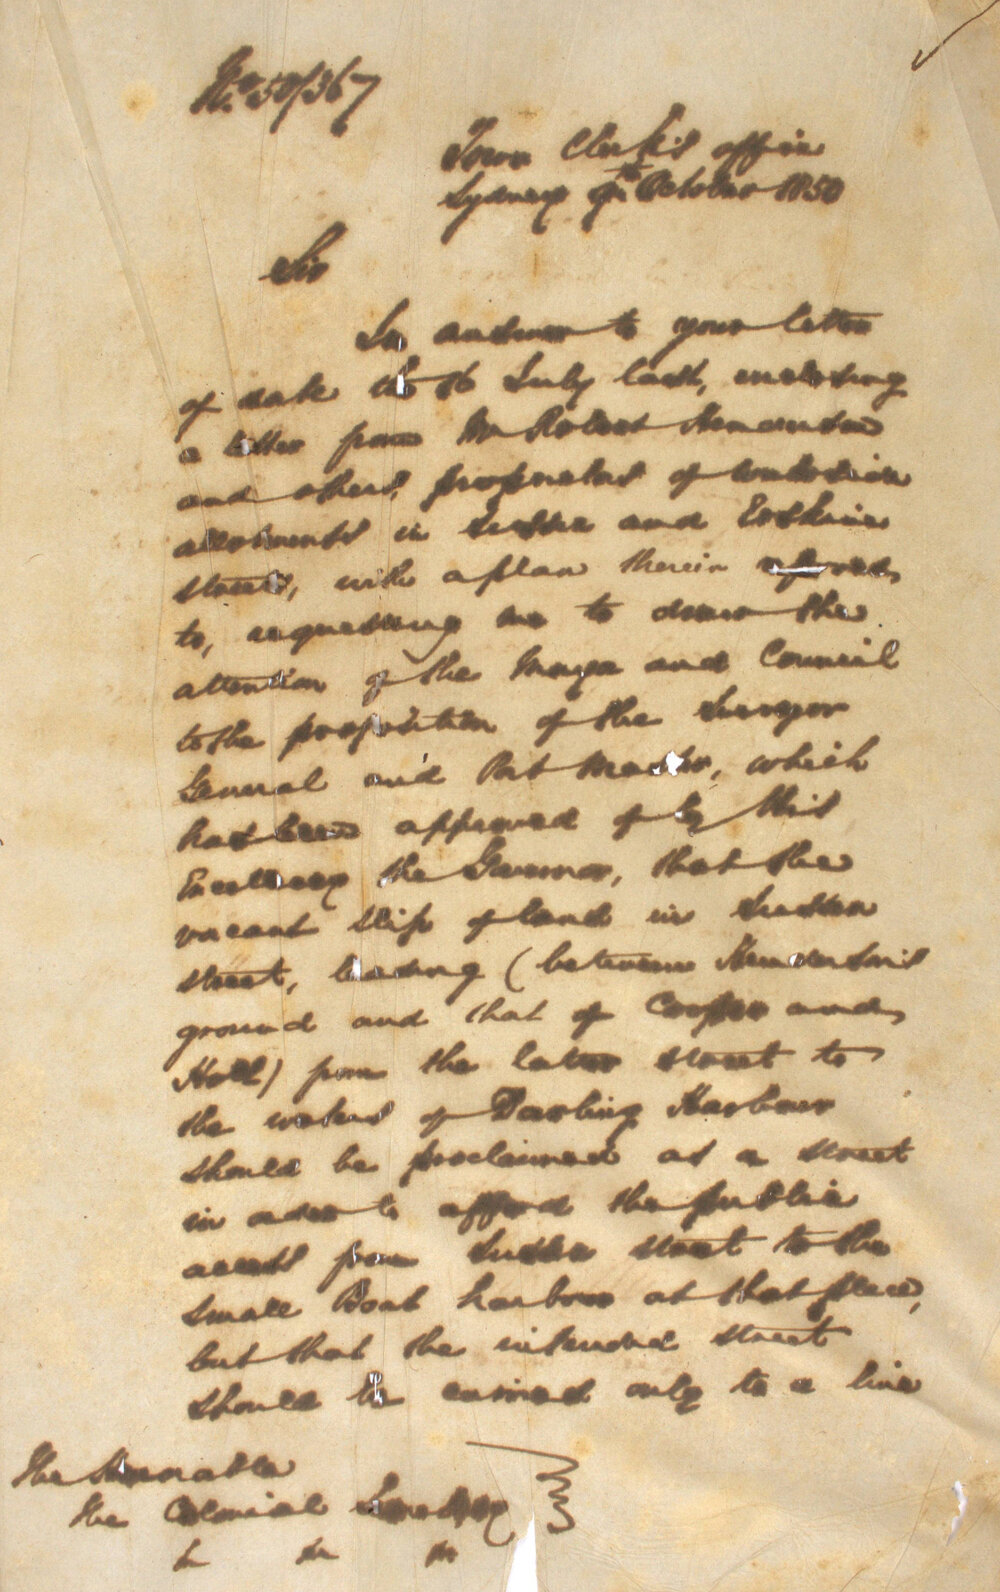 No. 50/367
Town Clerk's Office
Sydney 9th October 1850
Sir
In answer to your letter
of date the 16 July last, inclosing
a letter from Mr Robert Henderson
and others, proprietors of
allotments in Sussex and Erskine
streets, with a plan therein referred
to, requesting me to draw the
attention of the Mayor and Council
to the proposition of the Surveyor
General and Port Master, which
has been approved of by His
Excellency the Governor, that the
vacant slip of land in Sussex
street, leading (between Henderson's
ground and that of Cooper and
Holt) from the latter street to
the waters of Darling Harbour
should be proclaimed as a street
in order to afford the public
access from Sussex street to the
small Boat harbour at that place,
but that the intended street
should be carried only to a line
The Honorable
the Colonial Secretary